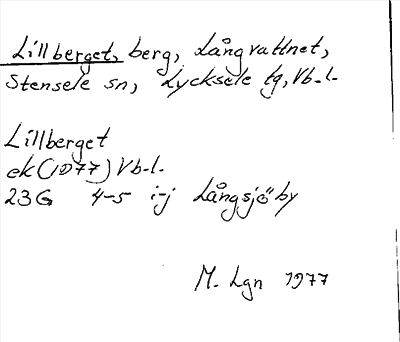 Lillberget, berg, Långvattnet,
Stensele sn, Lycksele tg, Vb-l.
Lillberget
ek (1977) Vb-l.
23G 4-5 i-j Långsjöby
M. Lgn 1977